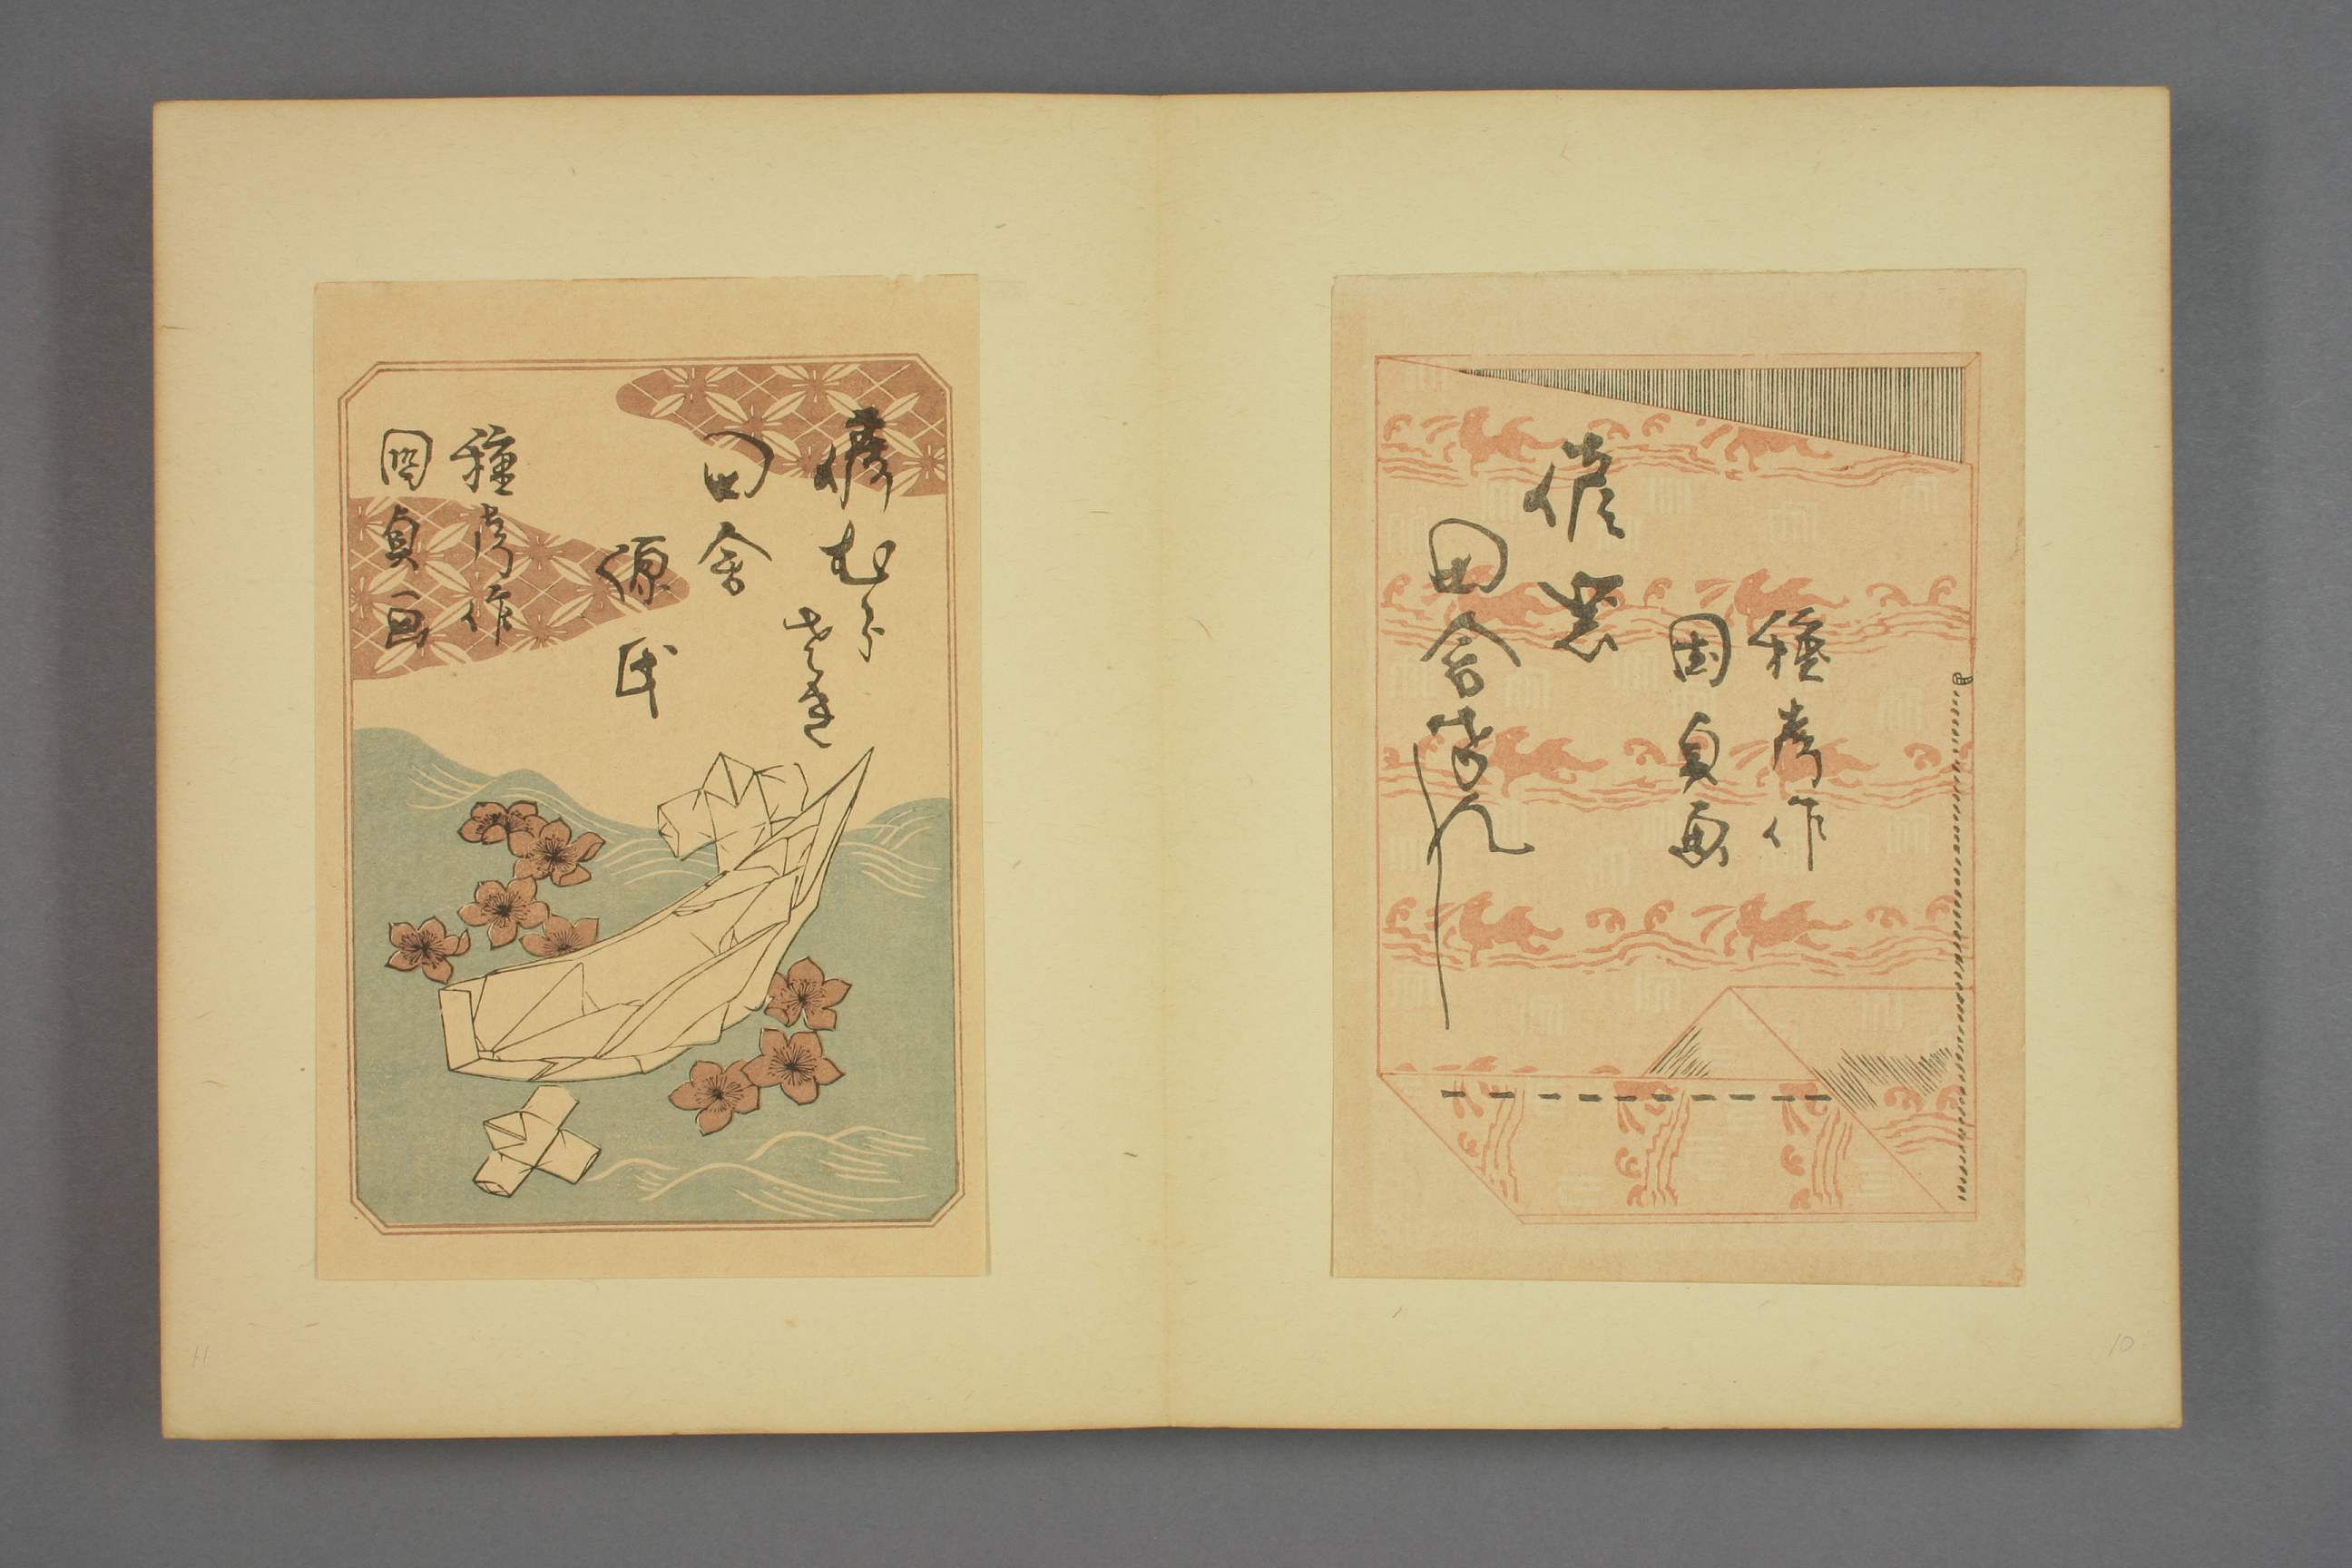 種彦作
國貞画
偐紫
田舎けんし
10
偐むらさき
田舎
源氏
種彦作
國貞画
11